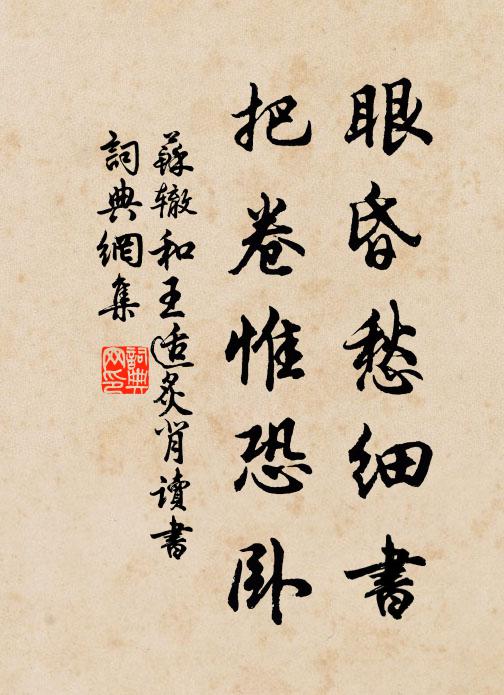 眼昏愁细書
把卷惟恐卧
蘇辙和王适炙背讀書
詞典網集
詞典網印